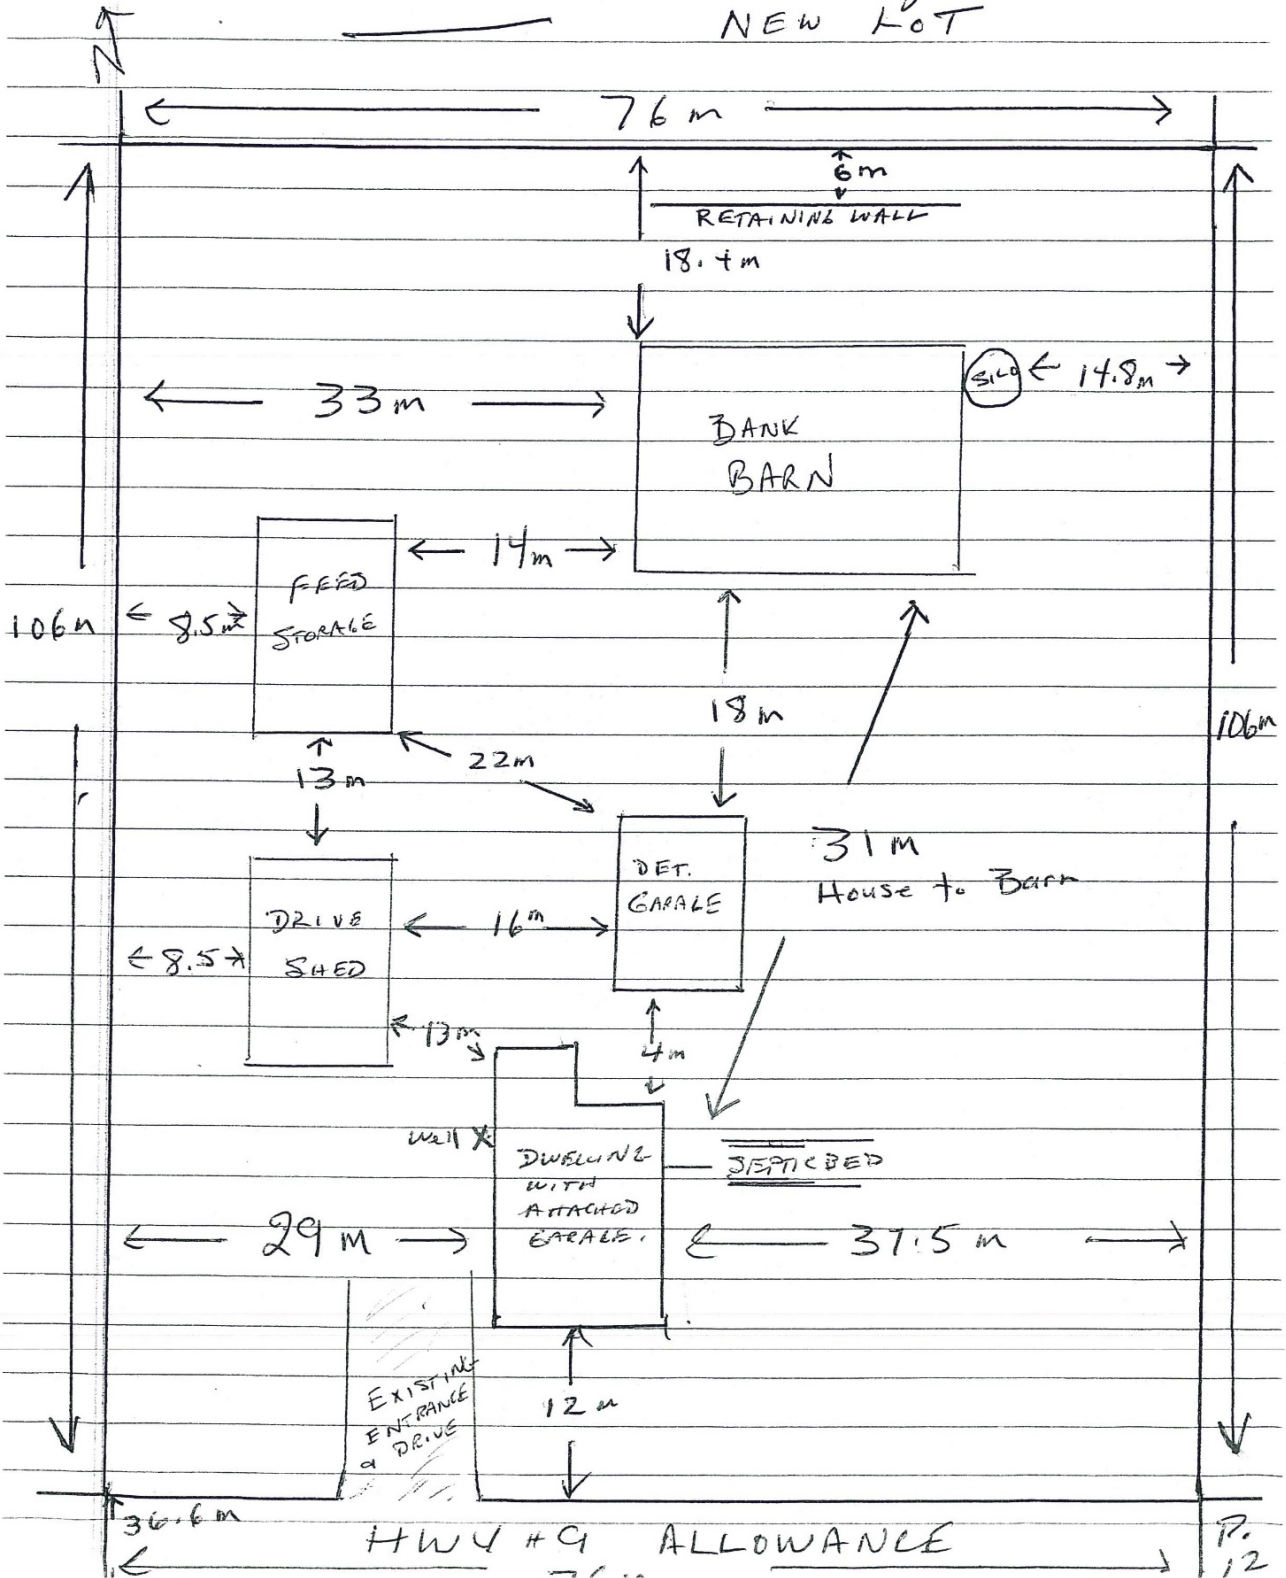 NEW LOT
N
76 m
6m
RETAINING WALL
18.4m
SILO
14.8m
33m
BANK
BARN
14m
FEED
STORAGE
8.5m
106m
18m
106m
22m
13m
31m
House to Barn
DET.
GARAGE
DRIVE
SHED
16m
8.5
13m
4m
Well X
DWELLING
WITH
ATTACHED
GARAGE.
SEPTIC BED
29m
37.5 m
EXISTING
ENTRANCE
DRIVE
12m
36.6m
HWY #9 ALLOWANCE
P.
12
76m